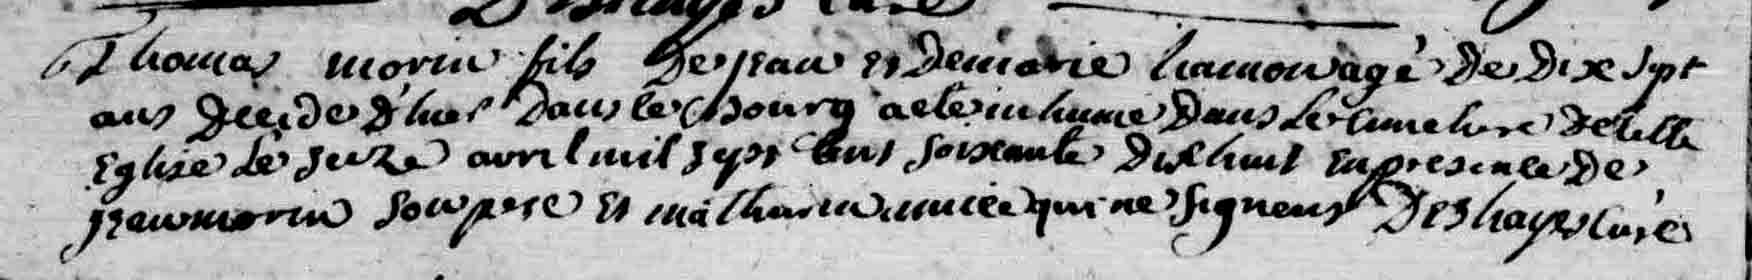 Deshayes Curé
Thomas morin fils de jean et de marie hamon agé de dix sept
ans decedé d'hier dans le bourg a eté inhumé dans le cimetiere de cette
Eglise le seize avril mil sept cent soixante dix huit en presence de
jean morin son pere et mathurin qui ne signent Deshayes Curé